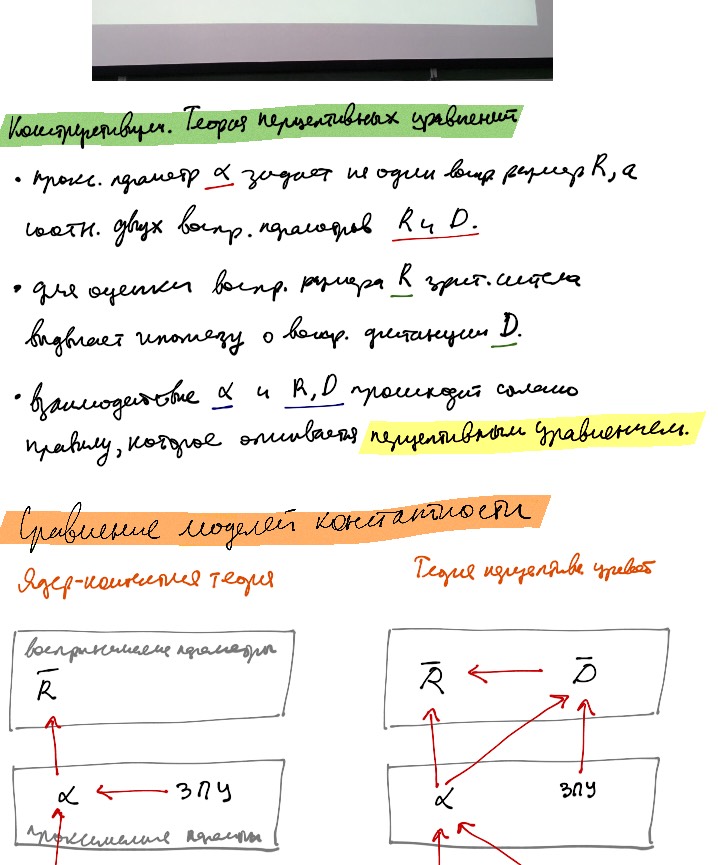 Конструктивизм. Теория перцептивных уравнений
• прокс. параметр α задает не один воспр размер R, а
соотн. двух воспр. параметров R и D.
• для оценки воспр. размера R зрит. система
выдвигает гипотезу о воспр. дистанции D.
• взаимодействие α и R, D происходит согласно
правилу, которое описывается перцептивным уравнением.
Сравнение моделей константности
Ядер-контекстная теория
Теория перцептивн уравнен
воспринимаемые параметры
R̅
R̅ D̅
α ЗПУ
α ЗПУ
проксимальные параметры